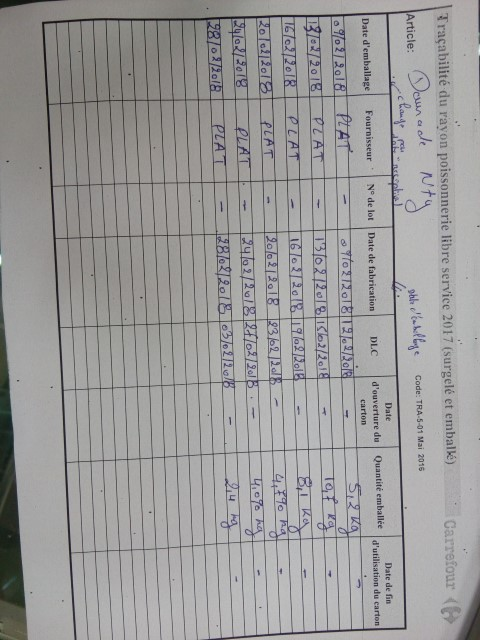 Traçabilité du rayon poissonnerie libre service 2017 (surgelé et emballé) Carrefour
Code: TRA-5-01 Mai 2016
Article: Daurade Ntg
Date d'emballage Fournisseur N° de lot Date de fabrication DLC Date d'ouverture du carton Quantité emballée Date de fin d'utilisation du carton
09/02/2018 PLAT - 09/02/2018 12/02/2018 - 5,2 Kg -
13/02/2018 PLAT - 13/02/2018 15/02/2018 - 10,7 Kg -
16/02/2018 PLAT - 16/02/2018 19/02/2018 - 8,1 Kg -
20/02/2018 PLAT - 20/02/2018 23/02/2018 - 4,790 Kg -
24/02/2018 PLAT - 24/02/2018 27/02/2018 - 4,090 Kg -
28/02/2018 PLAT - 28/02/2018 03/02/2018 - 2,4 Kg -